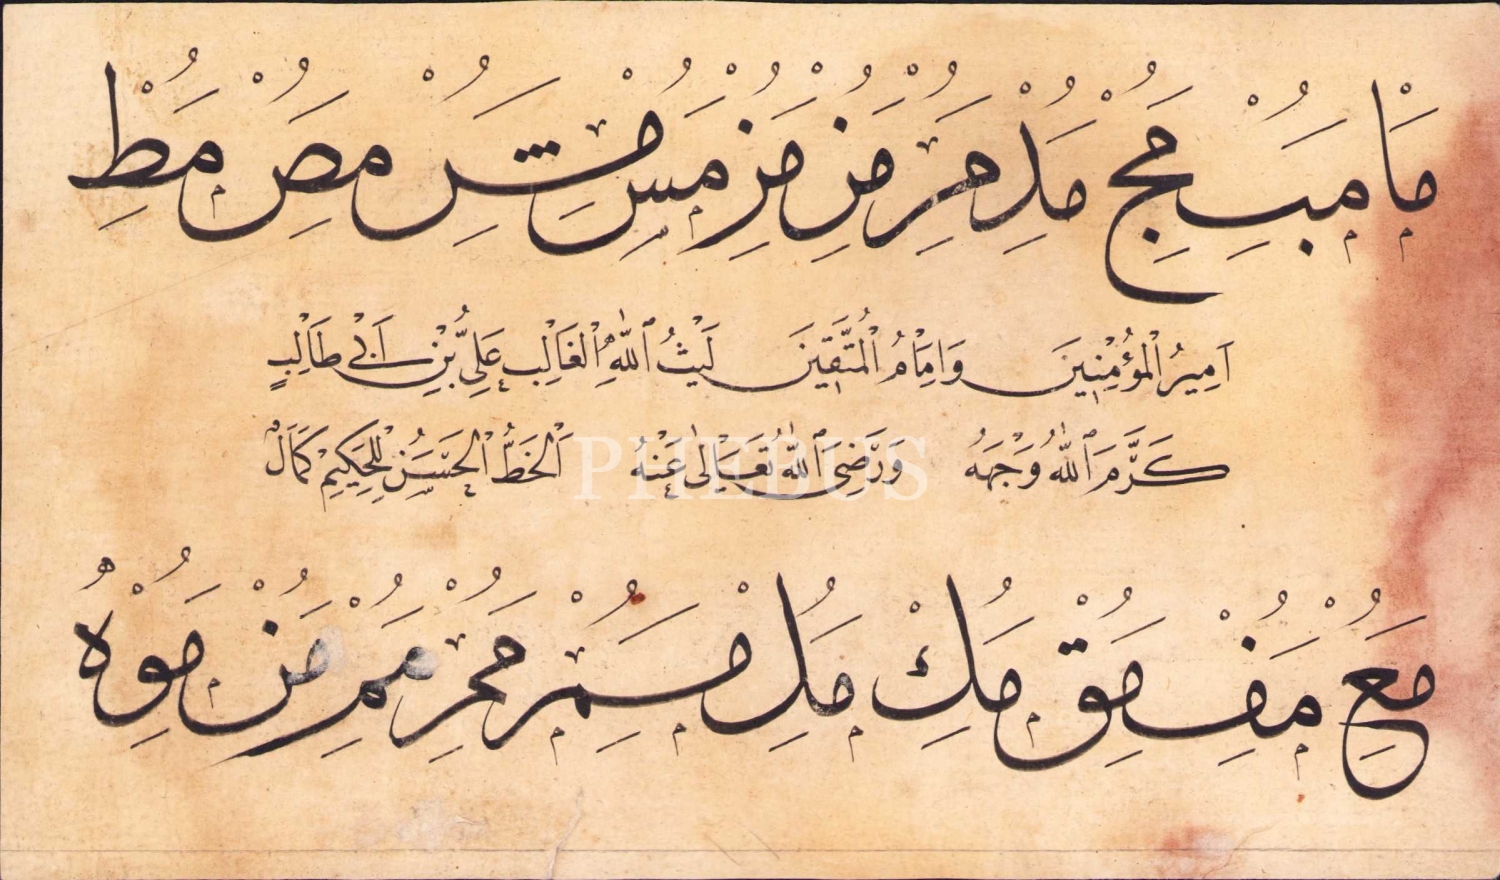 مَا مَبِ مَجِ مَدِ مَرِ مَرِ مَزِ مَسِ مَشِ مَصِ مَطِ
اَمِيرُ الْمُؤْمِنِينَ وَاِمَامُ الْمُتَّقِينَ لَيْثُ اللّٰهِ الْغَالِبِ عَلِىُّ بْنِ اَبِى طَالِبٍ
كَرَّمَ اللّٰهُ وَجْهَهُ وَرَضِىَ اللّٰهُ تَعَالٰى عَنْهُ اَلْخَطُّ الْحَسَنُ لِلْحَكِيمِ كَمَالْ
مَعِ مَفِ مَقِ مَكِ مَلِ مَمِ مَمِ مَمِ مَنْ مَوِ مَهُ
PHEBUS